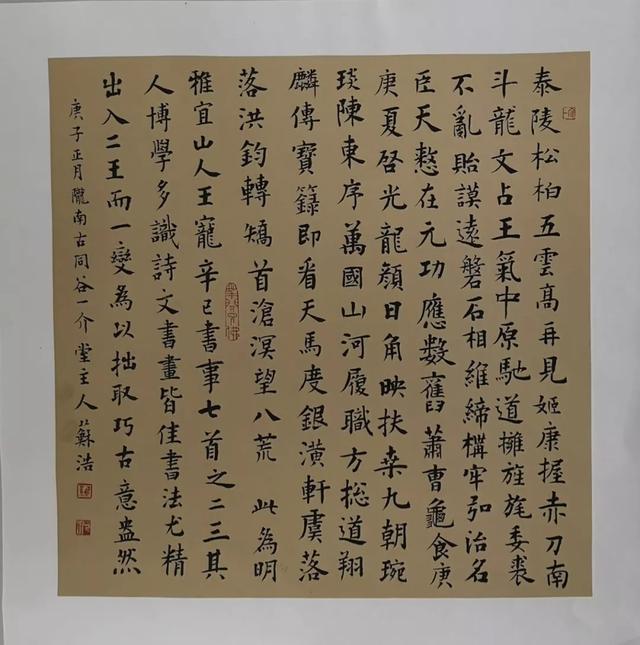 泰陵松柏五雲高再見姬康握赤刀南
斗龍文占王氣中原馳道擁旌旄委裘
不亂貽謨遠磐石相維締構牢弘治名
臣天憗在元功應數舊蕭曹龜食庚
庚夏啓光龍顏日角映扶桒九朝琬
琰陳東序萬國山河履職方揔道翔
麟傳寶籙即看天馬度銀潢軒虞落
落洪鈞轉矯首滄溟望八荒 此為明
雅宜山人王寵辛巳書事七首之二三其
人博學多識詩文書畫皆佳書法尤精
出入二王而一變為以拙取巧古意盎然
庚子正月隴南古同谷一介堂主人蘇浩